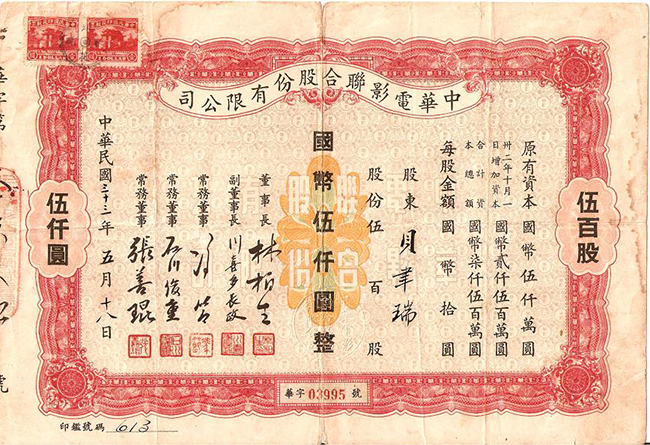 中華電影聯合股份有限公司
伍百股
原有資本國幣伍仟萬圓
卅二年十月一日增加資本國幣貳仟伍百萬圓
合計資本總額國幣柒仟伍百萬圓
每股金額國幣拾圓
股東貝聿瑞
股份伍百股
國幣伍仟圓整
董事長林柏生
副董事長川喜多長政
常務董事馮節
常務董事石川俊重
常務董事張善琨
中華民國三十三年五月十八日
伍仟圓
華字03995號
印鑑號碼 613